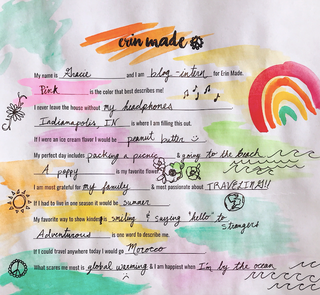 erin made
My name is Gracie and I am blog-intern for Erin Made.
Pink is the color that best describes me!
I never leave the house without my headphones
Indianapolis, IN is where I am filling this out.
If I were an ice cream flavor I would be peanut butter
My perfect day includes packing a picnic & going to the beach
A poppy is my favorite flower
I am most grateful for my family & most passionate about TRAVELING!!
If I had to live in one season it would be summer
My favorite way to show kindness is smiling & saying "hello" to strangers
Adventurous is one word to describe me.
If I could travel anywhere today I would go Morocco
What scares me most is global warming & I am happiest when I'm by the ocean